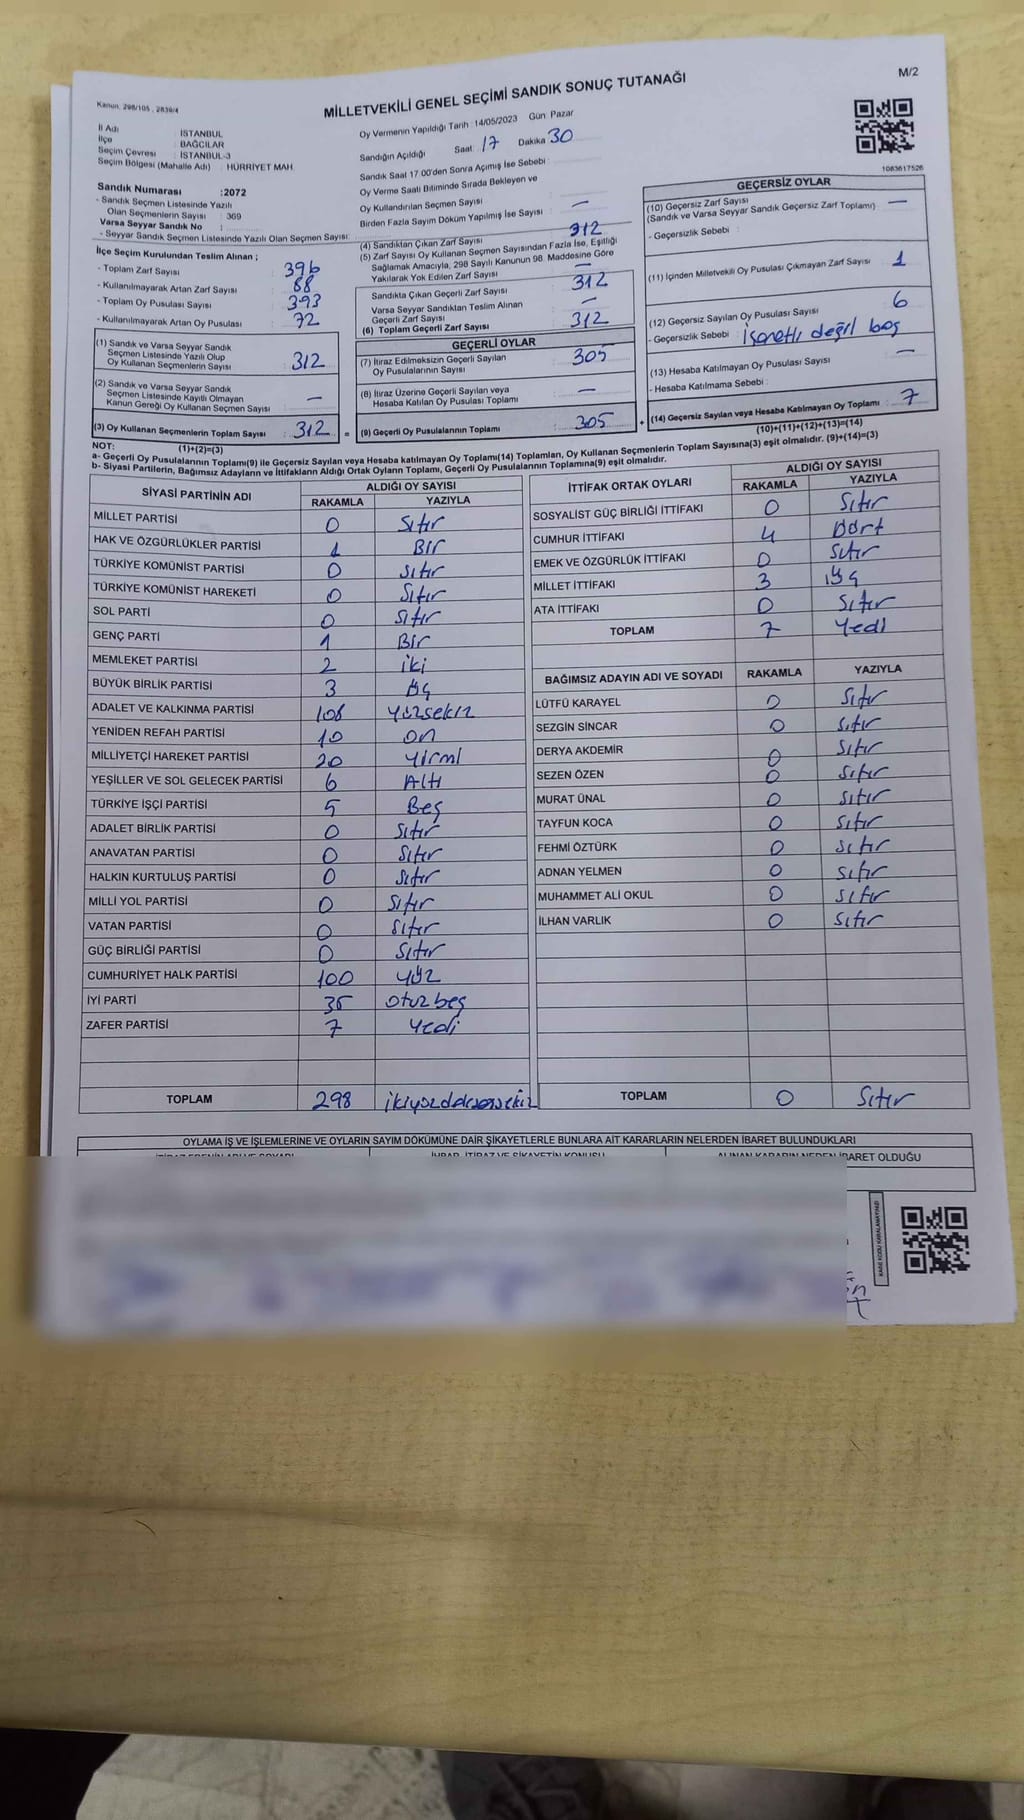 M/2
Kanun: 298/105 , 2839/4
MİLLETVEKİLİ GENEL SEÇİMİ SANDIK SONUÇ TUTANAĞI
İl Adı : İSTANBUL
İlçe : BAĞCILAR
Seçim Çevresi : İSTANBUL-3
Seçim Bölgesi (Mahalle Adı) : HÜRRİYET MAH.
Sandık Numarası :2072
- Sandık Seçmen Listesinde Yazılı
Olan Seçmenlerin Sayısı : 369
Varsa Seyyar Sandık No :
- Seyyar Sandık Seçmen Listesinde Yazılı Olan Seçmen Sayısı:
İlçe Seçim Kurulundan Teslim Alınan ;
- Toplam Zarf Sayısı : 396
- Kullanılmayarak Artan Zarf Sayısı : 88
- Toplam Oy Pusulası Sayısı : 393
- Kullanılmayarak Artan Oy Pusulası : 72
(1) Sandık ve Varsa Seyyar Sandık
Seçmen Listesinde Yazılı Olup
Oy Kullanan Seçmenlerin Sayısı : 312
(2) Sandık ve Varsa Seyyar Sandık
Seçmen Listesinde Kayıtlı Olmayan
Kanun Gereği Oy Kullanan Seçmen Sayısı : —
(3) Oy Kullanan Seçmenlerin Toplam Sayısı : 312 =
(1)+(2)=(3)
Oy Vermenin Yapıldığı Tarih : 14/05/2023 Gün: Pazar
Sandığın Açıldığı Saat: 17 Dakika 30
Sandık Saat 17:00'den Sonra Açılmış İse Sebebi :
Oy Verme Saati Bitiminde Sırada Bekleyen ve
Oy Kullandırılan Seçmen Sayısı :
Birden Fazla Sayım Döküm Yapılmış İse Sayısı : —
(4) Sandıktan Çıkan Zarf Sayısı : 312
(5) Zarf Sayısı Oy Kullanan Seçmen Sayısından Fazla İse, Eşitliği
Sağlamak Amacıyla, 298 Sayılı Kanunun 98. Maddesine Göre
Yakılarak Yok Edilen Zarf Sayısı : —
Sandıkta Çıkan Geçerli Zarf Sayısı : 312
Varsa Seyyar Sandıktan Teslim Alınan
Geçerli Zarf Sayısı : —
(6) Toplam Geçerli Zarf Sayısı : 312
GEÇERLİ OYLAR
(7) İtiraz Edilmeksizin Geçerli Sayılan
Oy Pusulalarının Sayısı : 305
(8) İtiraz Üzerine Geçerli Sayılan veya
Hesaba Katılan Oy Pusulası Toplamı : —
(9) Geçerli Oy Pusulalarının Toplamı : 305 +
1083617526
GEÇERSİZ OYLAR
(10) Geçersiz Zarf Sayısı
(Sandık ve Varsa Seyyar Sandık Geçersiz Zarf Toplamı) : —
- Geçersizlik Sebebi :
(11) İçinden Milletvekili Oy Pusulası Çıkmayan Zarf Sayısı : 1
(12) Geçersiz Sayılan Oy Pusulası Sayısı : 6
- Geçersizlik Sebebi : İşaretli değil boş
(13) Hesaba Katılmayan Oy Pusulası Sayısı : —
- Hesaba Katılmama Sebebi :
(14) Geçersiz Sayılan veya Hesaba Katılmayan Oy Toplamı : 7
(10)+(11)+(12)+(13)=(14)
NOT:
a- Geçerli Oy Pusulalarının Toplamı(9) ile Geçersiz Sayılan veya Hesaba katılmayan Oy Toplamı(14) Toplamları, Oy Kullanan Seçmenlerin Toplam Sayısına(3) eşit olmalıdır. (9)+(14)=(3)
b- Siyasi Partilerin, Bağımsız Adayların ve İttifakların Aldığı Ortak Oyların Toplamı, Geçerli Oy Pusulalarının Toplamına(9) eşit olmalıdır.
SİYASİ PARTİNİN ADI ALDIĞI OY SAYISI
RAKAMLA YAZIYLA
MİLLET PARTİSİ 0 Sıfır
HAK VE ÖZGÜRLÜKLER PARTİSİ 1 Bir
TÜRKİYE KOMÜNİST PARTİSİ 0 Sıfır
TÜRKİYE KOMÜNİST HAREKETİ 0 Sıfır
SOL PARTİ 0 Sıfır
GENÇ PARTİ 1 Bir
MEMLEKET PARTİSİ 2 iki
BÜYÜK BİRLİK PARTİSİ 3 üç
ADALET VE KALKINMA PARTİSİ 108 yüzsekiz
YENİDEN REFAH PARTİSİ 10 on
MİLLİYETÇİ HAREKET PARTİSİ 20 yirmi
YEŞİLLER VE SOL GELECEK PARTİSİ 6 Altı
TÜRKİYE İŞÇİ PARTİSİ 5 Beş
ADALET BİRLİK PARTİSİ 0 Sıfır
ANAVATAN PARTİSİ 0 Sıfır
HALKIN KURTULUŞ PARTİSİ 0 Sıfır
MİLLİ YOL PARTİSİ 0 Sıfır
VATAN PARTİSİ 0 Sıfır
GÜÇ BİRLİĞİ PARTİSİ 0 Sıfır
CUMHURİYET HALK PARTİSİ 100 yüz
İYİ PARTİ 35 otuzbeş
ZAFER PARTİSİ 7 yedi
TOPLAM 298 ikiyüzdoksansekiz
İTTİFAK ORTAK OYLARI ALDIĞI OY SAYISI
RAKAMLA YAZIYLA
SOSYALİST GÜÇ BİRLİĞİ İTTİFAKI 0 Sıfır
CUMHUR İTTİFAKI 4 Dört
EMEK VE ÖZGÜRLÜK İTTİFAKI 0 Sıfır
MİLLET İTTİFAKI 3 üç
ATA İTTİFAKI 0 Sıfır
TOPLAM 7 Yedi
BAĞIMSIZ ADAYIN ADI VE SOYADI RAKAMLA YAZIYLA
LÜTFÜ KARAYEL 0 Sıfır
SEZGİN SİNCAR 0 Sıfır
DERYA AKDEMİR 0 Sıfır
SEZEN ÖZEN 0 Sıfır
MURAT ÜNAL 0 Sıfır
TAYFUN KOCA 0 Sıfır
FEHMİ ÖZTÜRK 0 Sıfır
ADNAN YELMEN 0 Sıfır
MUHAMMET ALİ OKUL 0 Sıfır
İLHAN VARLIK 0 Sıfır
TOPLAM 0 Sıfır
OYLAMA İŞ VE İŞLEMLERİNE VE OYLARIN SAYIM DÖKÜMÜNE DAİR ŞİKAYETLERLE BUNLARA AİT KARARLARIN NELERDEN İBARET BULUNDUKLARI
İHBAR, İTİRAZ VE ŞİKAYETİN KONUSU ALINAN KARARIN NEDEN İBARET OLDUĞU
KARE KODU KARALAMAYINIZ!